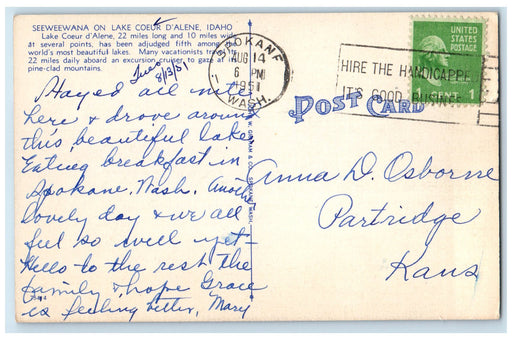 SEEWEEWANA ON LAKE COEUR D'ALENE, IDAHO
Lake Coeur d'Alene, 22 miles long and 10 miles wide
at several points, has been adjudged fifth among the
world's most beautiful lakes. Many vacationists travel
22 miles daily aboard an excursion cruiser to gaze at its
pine-clad mountains.
8/13/51
SPOKANE
AUG 14
6 PM
1951
WASH.
HIRE THE HANDICAPPED
IT'S GOOD BUSINESS
UNITED STATES
POSTAGE
1 CENT 1
POST CARD
Stayed all nite
here & drove around
this beautiful lake
Eating breakfast in
Spokane, Wash. Another
lovely day & we all
feel so well yet-
Hello to the rest the
family & hope Grace
is feeling better, Mary
Anna D. Osborne
Partridge
Kans